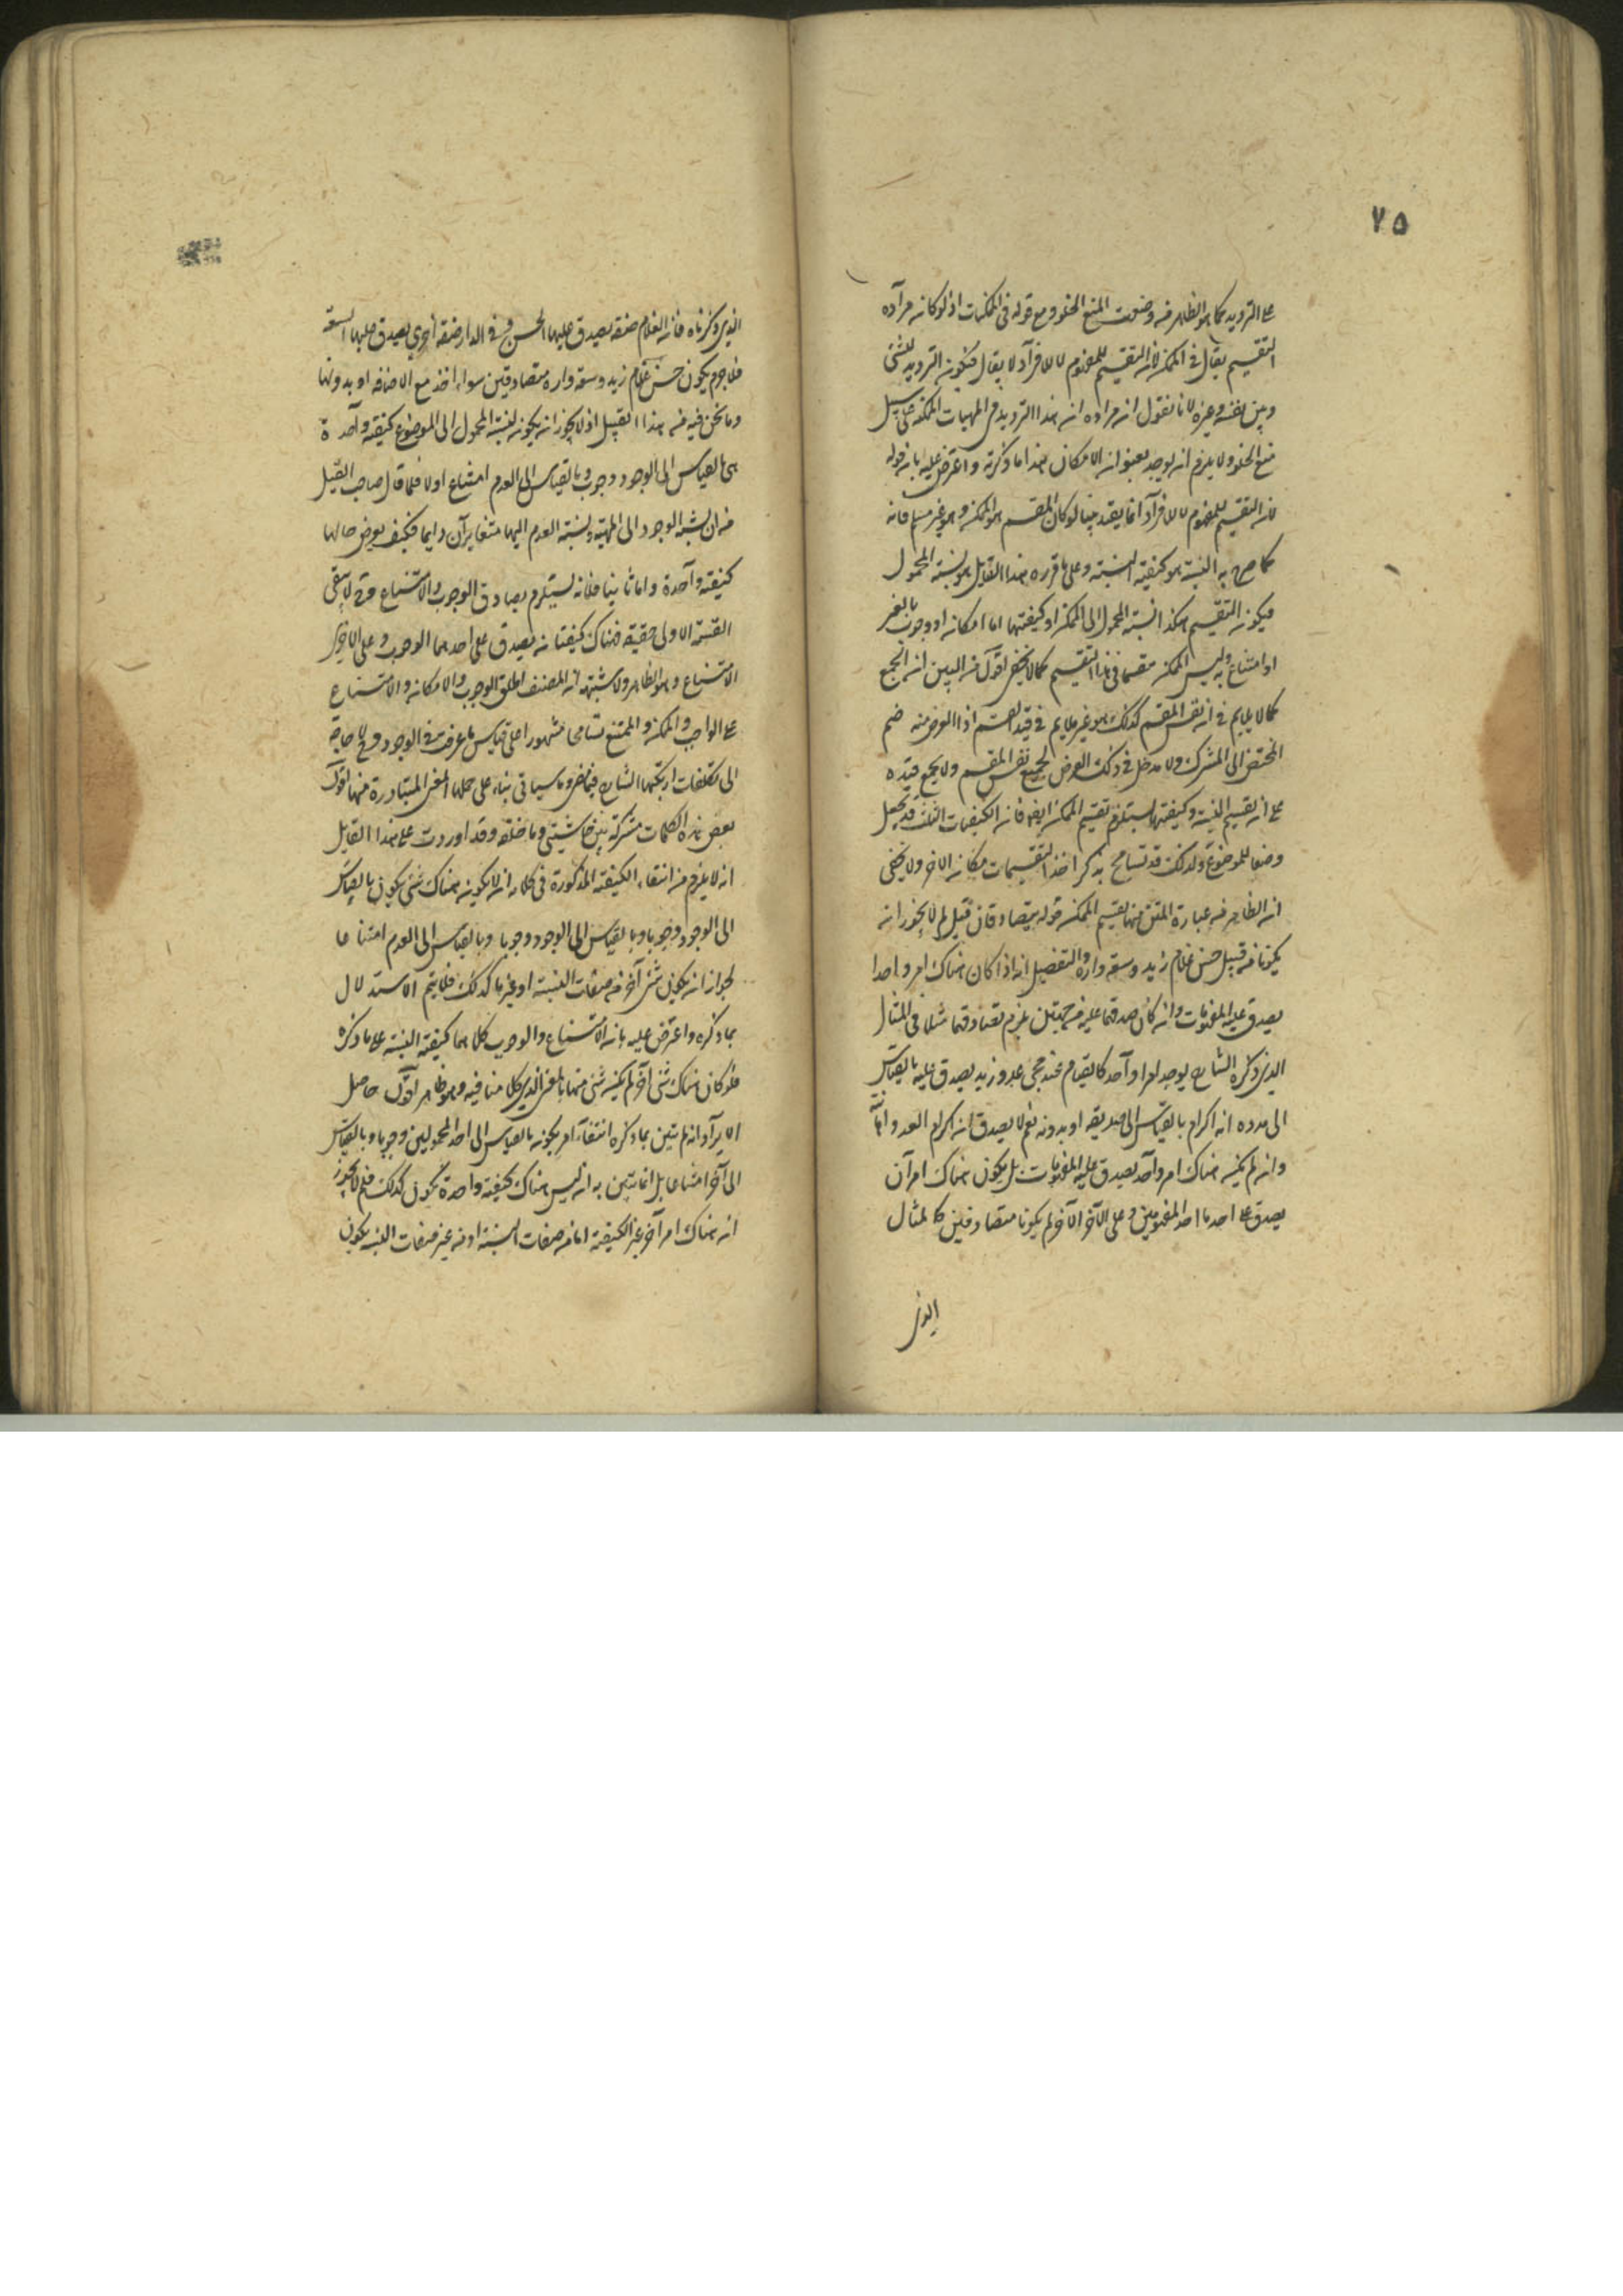 ٧٥
على الترديد كما هو الظاهر من وصفت المنع الخلو مع قوله فى الممكنات اذ لو كان مراده
التقسيم يقال فى الممكن لان التقسيم للمفهوم لا للافراد لا يقال فيكون الترديد للشئ
وبين نفسه وغيره لانا نقول ان مراده ان هذا الترديد فى المهيات الممكنة على سبيل
منع الخلو ولا يلزم ان يوجد بعنوان الامكان هذا ما ذكرته واعترض عليه بان قوله
لان التقسيم للمفهوم لا للافراد انما يفيد فيما لو كان المقسم هو الممكن وهو غير مسلم فانه
كما صرح به النسبة هو كيفية النسبة وعلى ما قرره هذا القايل هو نسبة المحمول
فيكون التقسيم هكذا نسبة المحمول الى الممكن او كيفيتها اما امكان او وجوب بالغير
او امتناع به وليس الممكن مقسما فى هذا التقسيم كما لا يخفى اقول من البين ان الجمع
كما لا يلايم فى نفس المقسم كذلك هو غير ملايم فى قيد القسم اذ الغرض منه ضم
المختص الى المشترك ولا مدخل فى ذلك الغرض لجمع نفس المقسم ولا يجمع قيده
على ان تقسيم النسبة وكيفيتها يستلزم تقسيم الممكن ايضا فان الكيفيات الثلث قد تجعل
وصفا للموضوع ولذلك قد تسامح بذكر احد التقسيمات مكان الاخر ولا يخفى
ان الظاهر من عبارة المتن منها تقسيم الممكن قوله يتصادقان قيل لم لا يجوز ان
يكونا من قبيل حسن غلام زيد وسعة داره والتفصيل انه اذا كان هناك امر واحدا
يصدق عليه المفهومات وان كان صدقهما عليه من جهتين يلزم تصادقهما مثلا فى المثال
الذى ذكره الشارح يوجد امر واحد كالقيام عند مجئ عدو زيد يصدق عليه بالقياس
الى عدوه انه اكرام بالقياس الى صديقه او بدونه نعم لا يصدق انه اكرام العدو
وان لم يكن هناك امر واحد يصدق عليه المفهومات بل يكون هناك امران
يصدق على احدهما احد المفهومين وعلى الآخر الآخر لم يكونا متصادقين كالمثال
الذى
الذى ذكرناه فان الغلام صفة يصدق عليها الحسن وفى الدار صفة اخرى يصدق عليها السعة
فلا جرم يكون حسن غلام زيد وسعة داره متصادقين سواء اخذ مع الاضافة او بدونها
وما نحن فيه من هذا القبيل اذ لا يجوز ان يكون لنسبة المحمول الى الموضوع كيفية واحدة
هى بالقياس الى الوجود وجوب وبالقياس الى العدم امتناع اولا فلما قال صاحب القيل
من ان نسبة الوجود الى المهية ونسبة العدم اليها متغايران دايما فكيف يعرض حالها
كيفية واحدة واما ثانيا فلانه يستلزم تصادق الوجوب والامتناع وح لا يبقى
القسمة الاولى حقيقة فهناك كيفيتان يصدق على احدهما الوجوب وعلى الاخرى
الامتناع وهو الظاهر ولا شبهة ان المصنف اطلق الوجوب والامكان والامتناع
على الواجب والممكن والممتنع تسامحا مشهورا على قياس ما عرفت فى الوجود وح لا حاجة
الى تكلفات ارتكبها الشارح فيما مضى وما سياتى بناء على حملها المعنى المتبادرة منها اقول
بعض هذه الكلمات مشتركة بين حاشيتى وما خلفه وقد اوردت على هذا القايل
انه لا يلزم من انتفاء الكيفية المذكورة فى كلامه ان لا يكون هناك شئ يكون بالقياس
الى الوجود وجوبا وبالقياس الى الوجود وجوبا وبالقياس الى العدم امتناعا
لجواز ان يكون شئ آخر من صفات النسبة او غيرها كذلك فلا يتم الاستدلال
بما ذكره واعترض عليه بان الامتناع والوجوب كلاهما كيفية النسبة على ما ذكره
فلو كان هناك شئ آخر لم يكن شئ منهما بالمعنى الذى كلامنا فيه وهو ظاهر اقول حاصل
الايراد انه لم يتبين بما ذكره انتفاء امر يكون بالقياس الى احد المحمولين وجوبا وبالقياس
الى آخر امتناعا بل انما تبين به انه ليس هناك كيفية واحدة تكون كذلك فلم لا يجوز
ان هناك امر آخر غير الكيفية اما من صفات النسبة او من غير صفات النسبة يكون